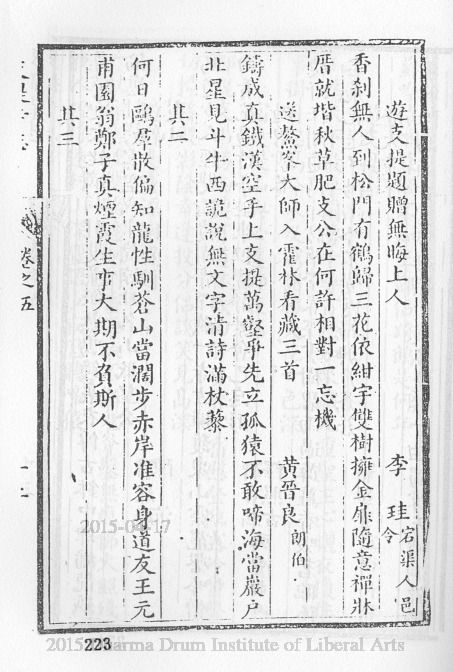 遊支提題贈無晦上人　李珪宕渠人邑令
香剎無人到松門有鶴歸三花依紺宇雙樹擁金扉隨意禪牀
厝就堦秋草肥支公在何許相對一忘機
送鰲峯大師入霍林看藏三首　黃晉良朗伯
鑄成真鐵漢空手上支提萬壑爭先立孤猿不敢啼海當巖户
北星見斗牛西詭說無文字清詩滿杖藜
其二
何日鷗羣散偏知龍性馴蒼山當濶步赤岸准容身道友王元
甫園翁鄭子真煙霞生事大期不負斯人
其三
卷之五
2015-04-17
223
2015 Dharma Drum Institute of Liberal Arts